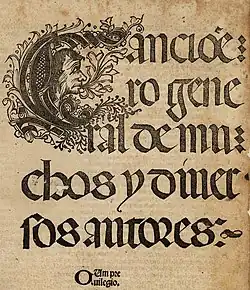 Cancione⸗
ro gene
ral de mu
chos y diuer
sos autores⸗
Cum pre
uilegio.